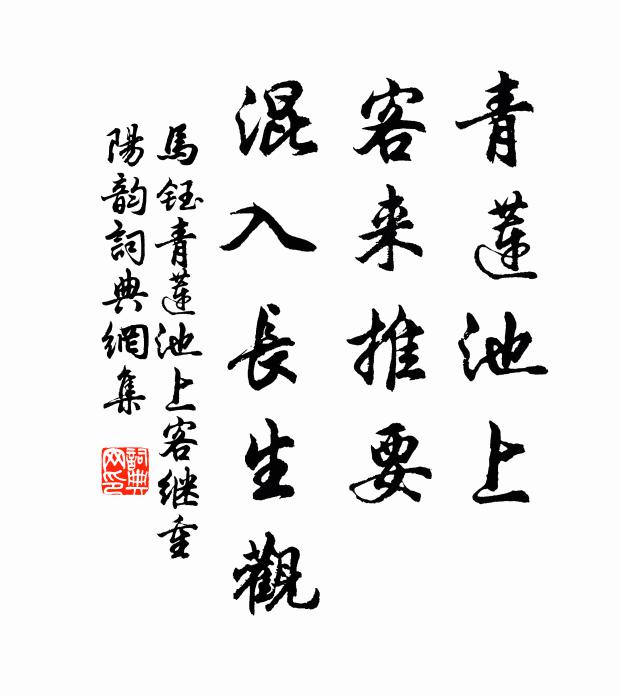 青蓮池上
客来推要
混入長生觀
馬鈺青蓮池上客继重
陽韵詞典網集
詞典
网印